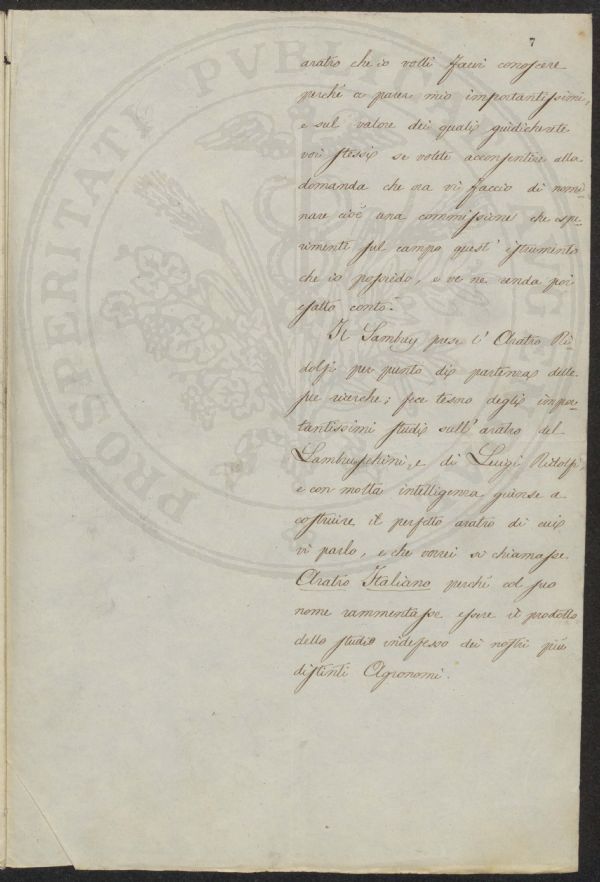 7
aratro che io volli farvi conoscere
perché a parer mio importantissimi,
e sul valore dei quali giudicherete
voi stessi se volete acconsentire alla
domanda che ora vi faccio di nomi-
nare cioè una commissione che espe-
rimenti sul campo quest' istrumento
che io possiedo, e ve ne renda poi
esatto conto.
Il Sambuy prese l' Aratro Ri-
dolfi per punto di partenza delle
sue ricerche; fece tesoro degli impor-
tantissimi studi sull' aratro del
Lambruschini, e di Luigi Ridolfi,
e con molta intelligenza giunse a
costruire il perfetto aratro di cui
vi parlo, e che vorrei si chiamasse
Aratro Italiano perché col suo
nome rammentasse essere il prodotto
dello studio indefesso dei nostri più
distinti Agronomi.
PROSPERITATI PVBLICAE AVGE